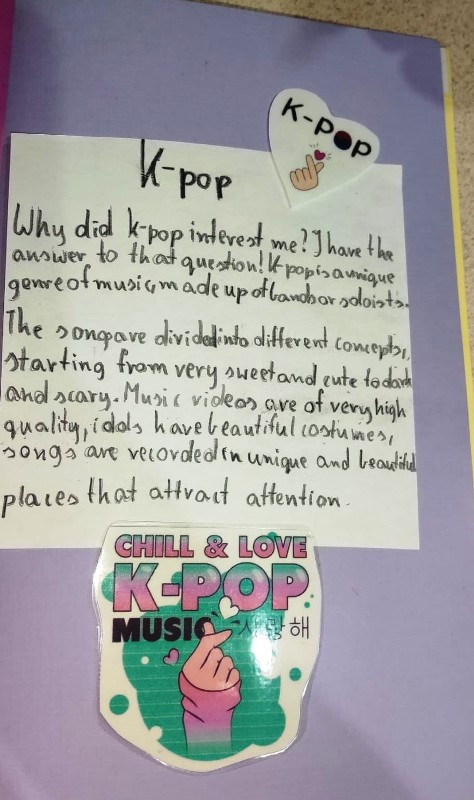 K-POP
K-pop
Why did k-pop interest me? I have the
answer to that question! K pop is a unique
genre of music, made up of bands or soloists.
The songs are divided into different concepts,
starting from very sweet and cute to dark
and scary. Music videos are of very high
quality, idols have beautiful costumes,
songs are recorded in unique and beautiful
places that attract attention.
CHILL & LOVE
K-POP
MUSIC 사랑해